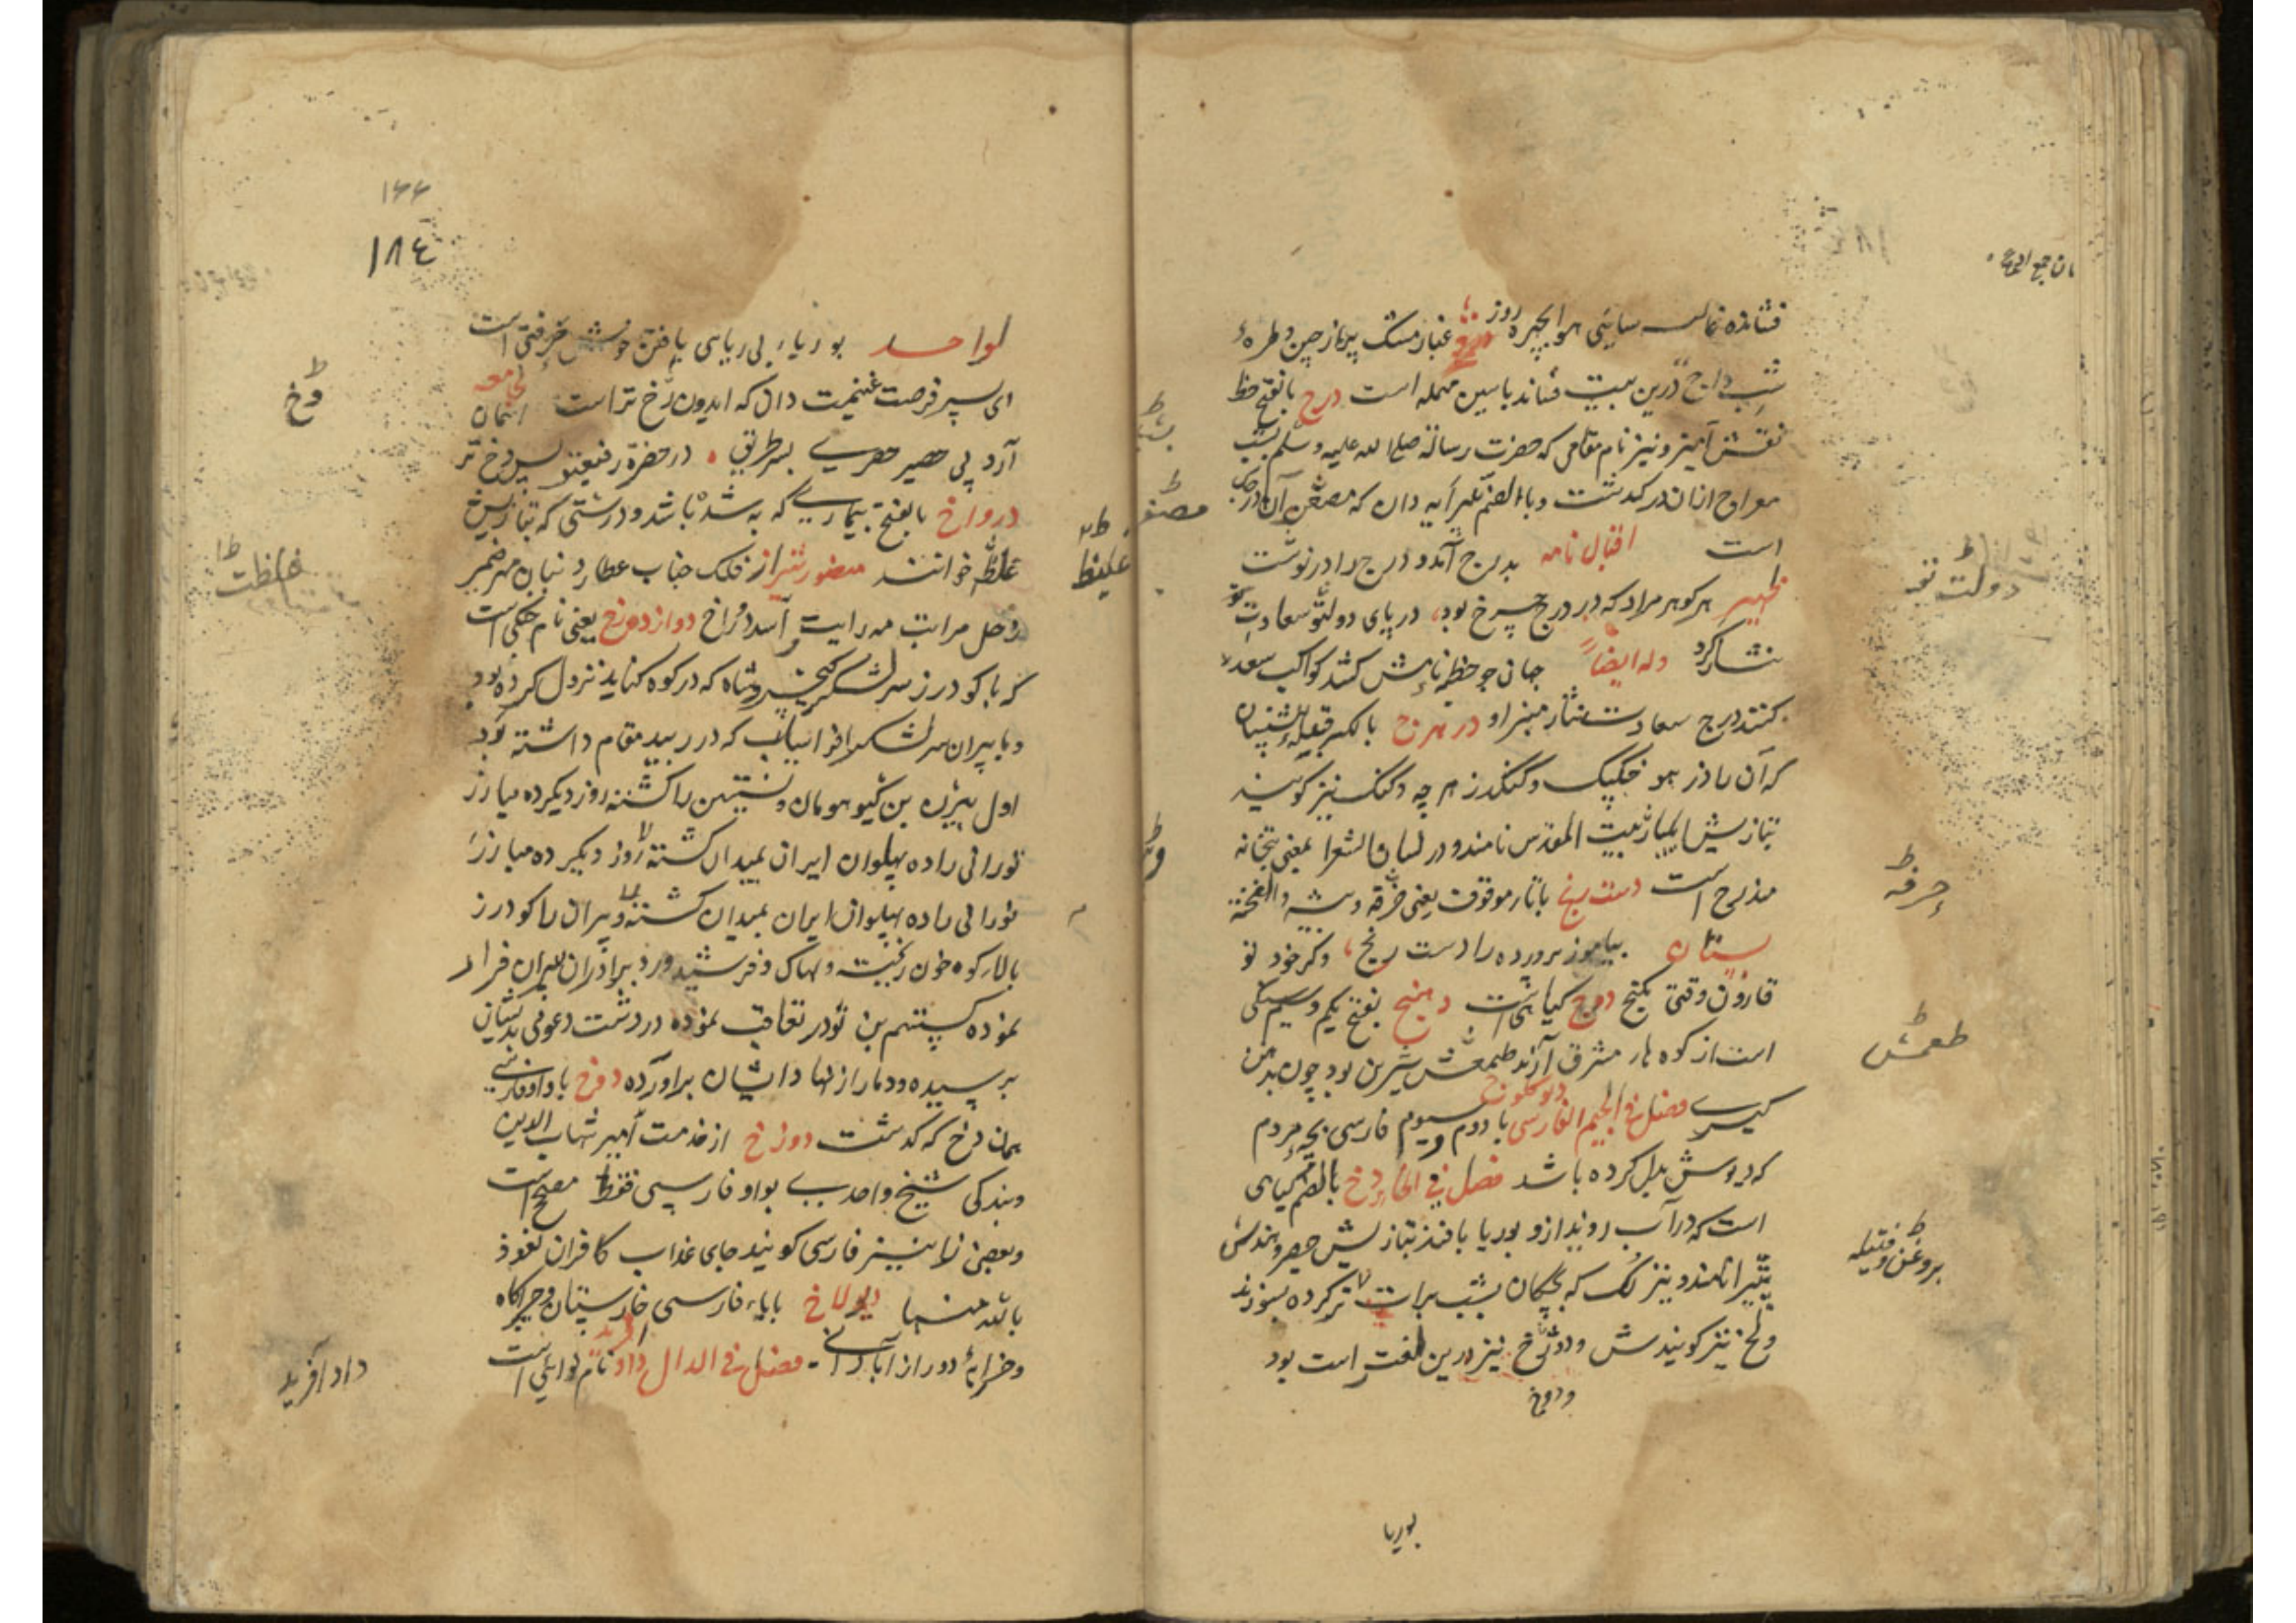 فشانده شمالست سایئی هوا بچهره روز
غبار مشک پیماز چین و طرهٔ
شب داج درین بیت فشاند باسین مهمله است درج بالفتح خط
نقش آمیز و نیز نام مقامی که حضرت رسالة صلی الله علیه وسلم بشب
معراج ازان در گذشت و بالضم پیرایه دان که مصغر آن درجک
است اقبال نامه بدرج آمد و درج را در نوشت
ظهیر هر گوهر مراد که در درج چرخ بود در پای دولتو سعادت تو
نثار کرد وله ایضاً جهان چو خطبه نامش کشد کواکب سعد
کنند درج سعادت نثار منبر او در هرج بالکسر قبله پیشینیان
که آن را دز هوخت گنگ و گنگدز هرچه و گنگ نیز گویند
بتازیش ایلیا و بیت المقدس نامند و در لسان الشعرا بمعنی بتخانه
مذرح است دست رنج باتاء موقوف یعنی حرفه و پیشه و الفخته
بستان بیاموز پرورده را دست رنج وگر خود تو
قارون وقتی بگنج درج گیاهی است دهنج بفتح یکم و سیم سنگی
است از کوه هار مشرق آرند طعمش شیرین بود چون بدهن
گیرے فصل فی الجیم الفارسی با دوم و سیوم فارسی بچه مردم
دیوکلوچ
که دیوش بدل کرده باشد فصل فی الخاء دخ بالضم گیاهی
است که در آب روید ازو بوریا بافند بتازیش حصیر و هندش
پتیرا نامند و نیز لک که بچگان بشب برات تر کرده بسوزند
ولخ نیز گویندش و دوخ نیز درین لغت است بود
و دوخ
بوریا
دولت تو
حرفه
طعمش
بروغن و فتیله
۱۴۴
۱۸۴
لواحد بوریاء بی ریاسی یافتن خوش خرقتی است
ای پسر فرصت غنیمت دان که ایدون دخ تر است لجامعه آسمان
آرد پی حصیر حصرے بهر طریق در حضرة رفیعتو پس دخ تر
درواخ بالفتح بیمارے که به شده باشد و درشتی که بتازیش
غلظه خوانند منصور شیراز فلک جناب عطارد بنان مهر ضمیر
زحل مراتب مه رایت و اسد درواخ دوازده رخ یعنی نام جنگی است
که با گودرز سر لشکر کیخسرو شاه که در کوه کنابد نزول کرده بود
و با پیران سر لشکر افراسیاب که در ریبد مقام داشته بود
اول بیژن بن گیو هومان و نستیهن را کشته روز دیگر ده مبارز
تورانی را ده پهلوان ایران بمیدان کشته روز دیگر ده مبارز
تورانی را ده پهلوان ایران بمیدان کشته و پیران را گودرز
بالاء کوه خون ریخت و لهاک و فرشیدورد برادران پیران فرار
نموده گستهم بن نوذر تعاقب نموده در دشت دعوی بدیشان
برسیده و دمار از نهاد ایشان برآورده دوخ با واو فارسی
همان دخ که گذشت دوزاخ از خدمت امیر شهاب الدین
و بندگی شیخ واحدے بواو فارسی فقط مصحح است
و بعضی زا نیز فارسی گویند جای عذاب کافران نعوذ
بالله منها دیولاخ بایاء فارسی خارستان و چراگاه
و خرابهٔ دور از آبادانے فصل فی الدال داد آفرید نام نوایی است
دخ
غلظت
غلیظ
داد آفرید